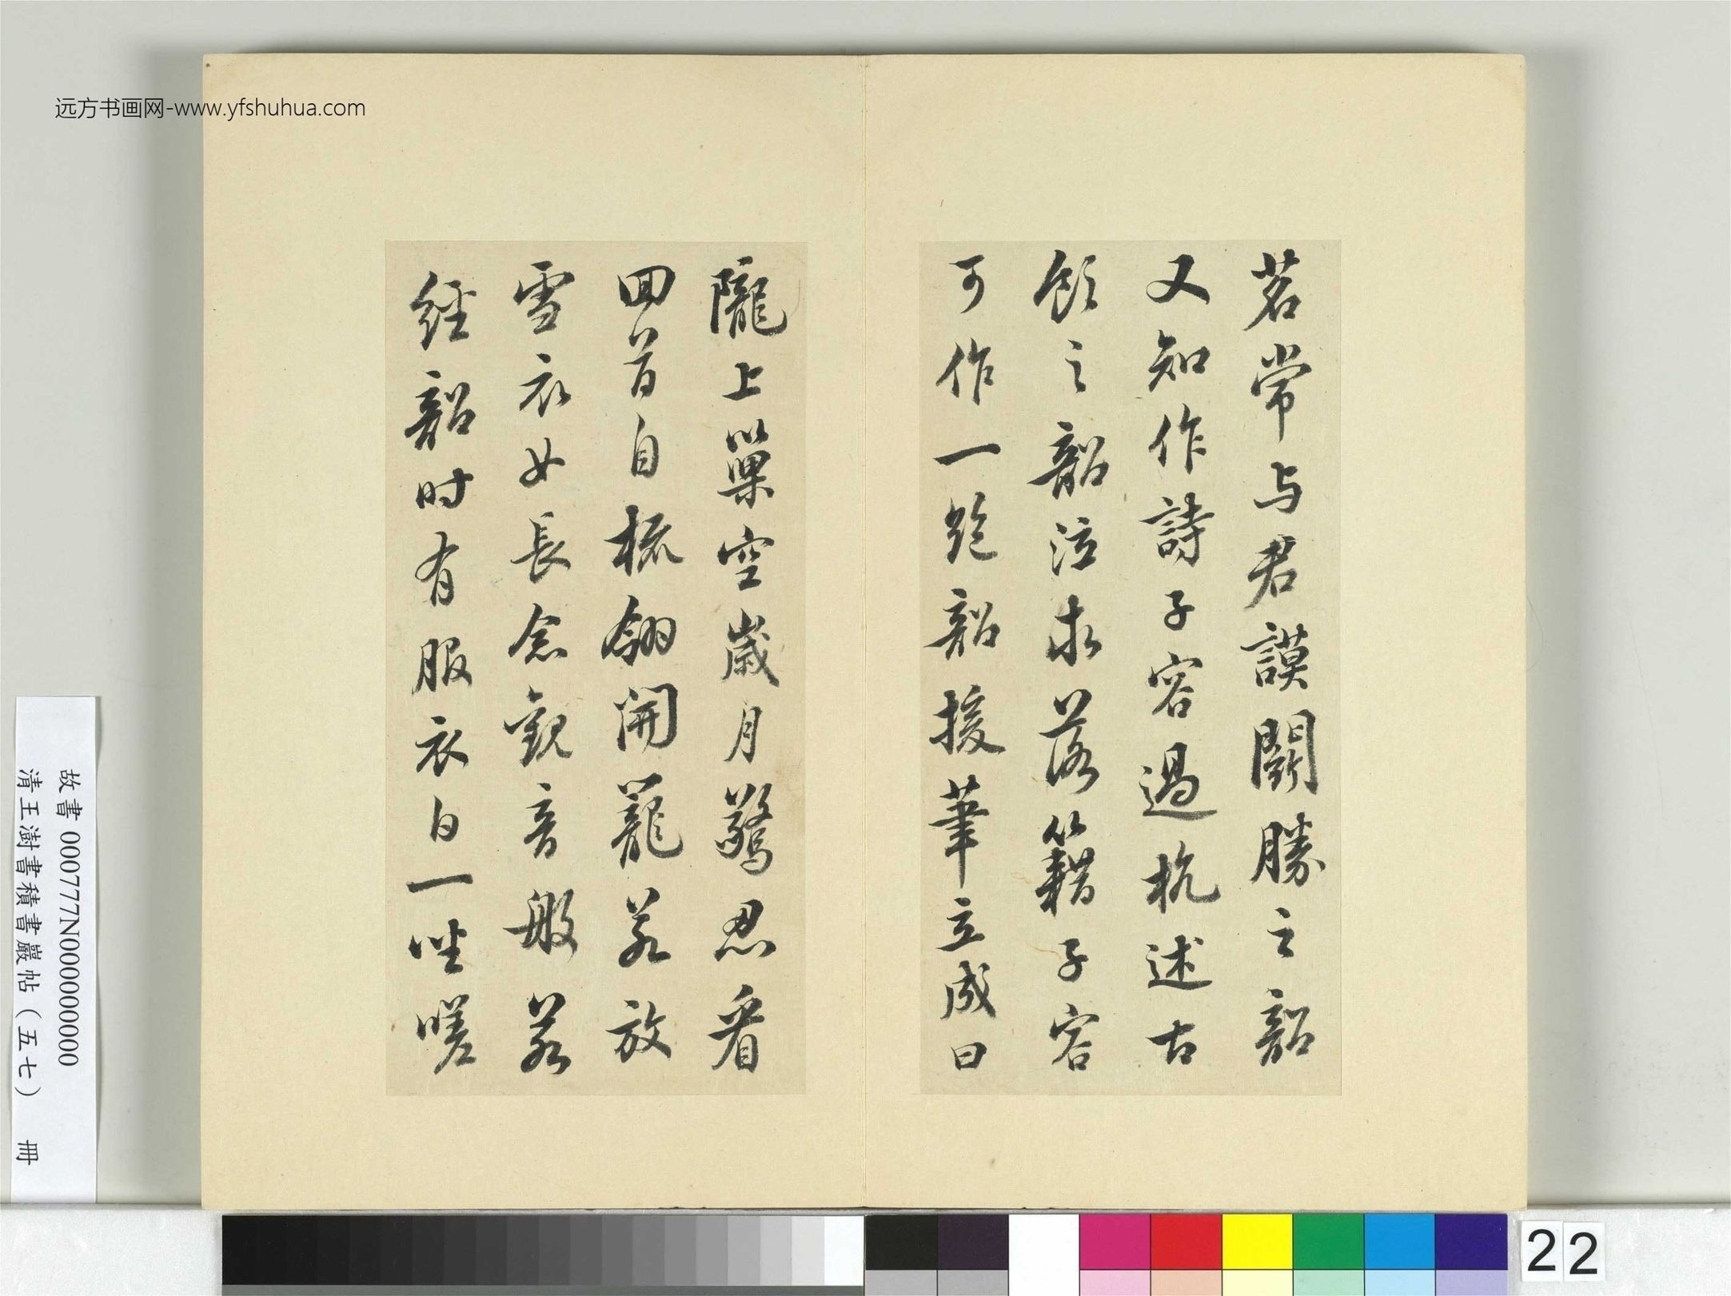 远方书画网-www.yfshuhua.com
茗常与君謨闘勝之韶
又知作詩子容過杭述古
飲之韶泣求落籍子容
可作一绝韶援筆立成曰
隴上巢空歲月驚忍看
回首自梳翎開籠若放
雪衣女長念觀音般若
經韶时有服衣白一坐嗟
故書 000777N000000000
清王澍書積書巖帖（五七） 冊
22